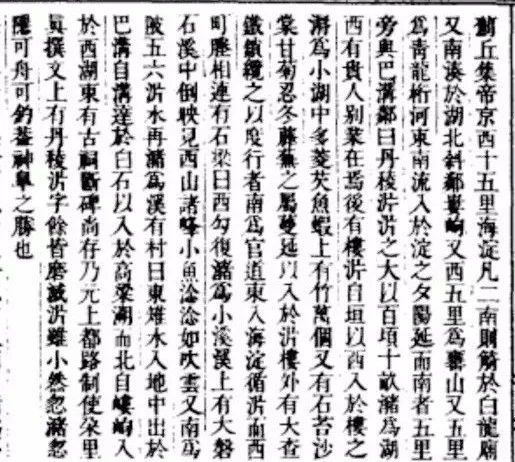 薊丘集帝京西十五里海淀凡二南則觴於白龍廟
又南湊於湖北斜鄰蓑峒又西五里為甕山又五里
為青龍橋河東南流入於淀之夕陽延而南者五里
旁與巴溝鄰曰丹稜沜沜之大以百頃十畝瀦為湖
西有貴人別業在焉後有樓沜自垣以西入於樓之
澥為小湖中多菱芡魚蝦上有竹萬個又有石苔沙
棠甘菊忍冬藤蕪之屬蔓延以入於沜樓外有大查
鐵鎖纜之以度行者南為官道東入海淀循沜而西
町塍相連有石梁曰西勾復瀦為小溪溪上有大磐
石溪中倒映見西山諸峰小魚淰淰如吹雲又南為
陂五六沜水再瀦為溪有村曰東雉水入地中出於
巴溝自溝達於白石以入於高梁湖而北自嶁峒入
於西湖東有古祠斷碑尚存乃元上都路制使朵里
真撰文上有丹稜沜字餘皆磨滅沜雖小然忽瀦忽
隱可舟可釣蓋神皋之勝也